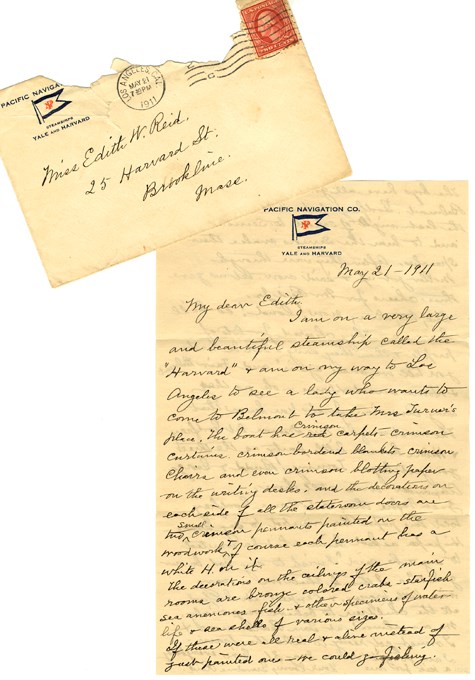 PACIFIC NAVIGATION
STEAMSHIPS
YALE AND HARVARD
LOS ANGELES, CAL.
MAY 21
7 30 PM
1911
U.S. POSTAGE
Miss Edith W. Reid.
25 Harvard St.
Brookline.
Mass.
PACIFIC NAVIGATION CO.
STEAMSHIPS
YALE AND HARVARD
May 21-1911
My dear Edith
I am on a very large
and beautiful steamship called the
"Harvard" & am on my way to Los
Angeles to see a lady who wants to
come to Belmont to take Mrs Turner's
place. The boat has red crimson carpets crimson
curtains. crimson bordered blankets crimson
chairs and even crimson blotting paper
on the writing desks, and the decorations on
each side of all the stateroom doors are
two small crimson pennants painted on the
woodwork & of course each pennant has a
white H. on it
The decorations on the ceilings of the main
rooms are bronze colored crabs - starfish
sea anemones - fish. & other specimens of water
life & sea shells of various sizes.
If these were all real & alive instead of
just painted ones - we could go fishing.